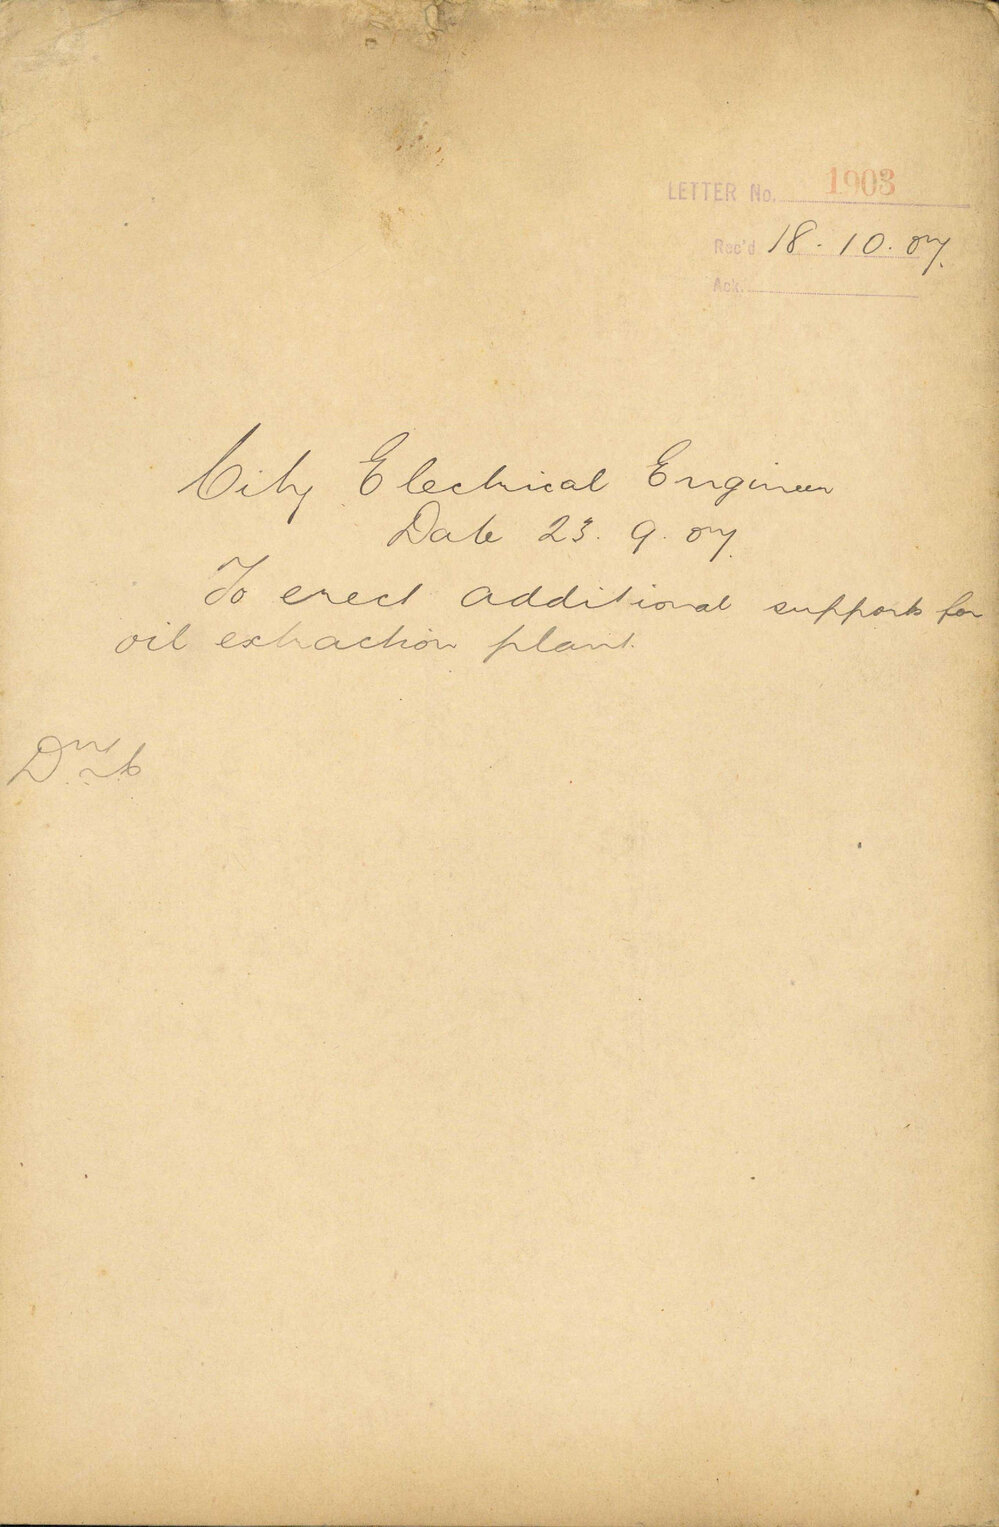 LETTER No. 1903
Rec'd 18.10.07.
Ack.
City Electrical Engineer
Date 23.9.07.
To erect additional supports for
oil extraction plant.